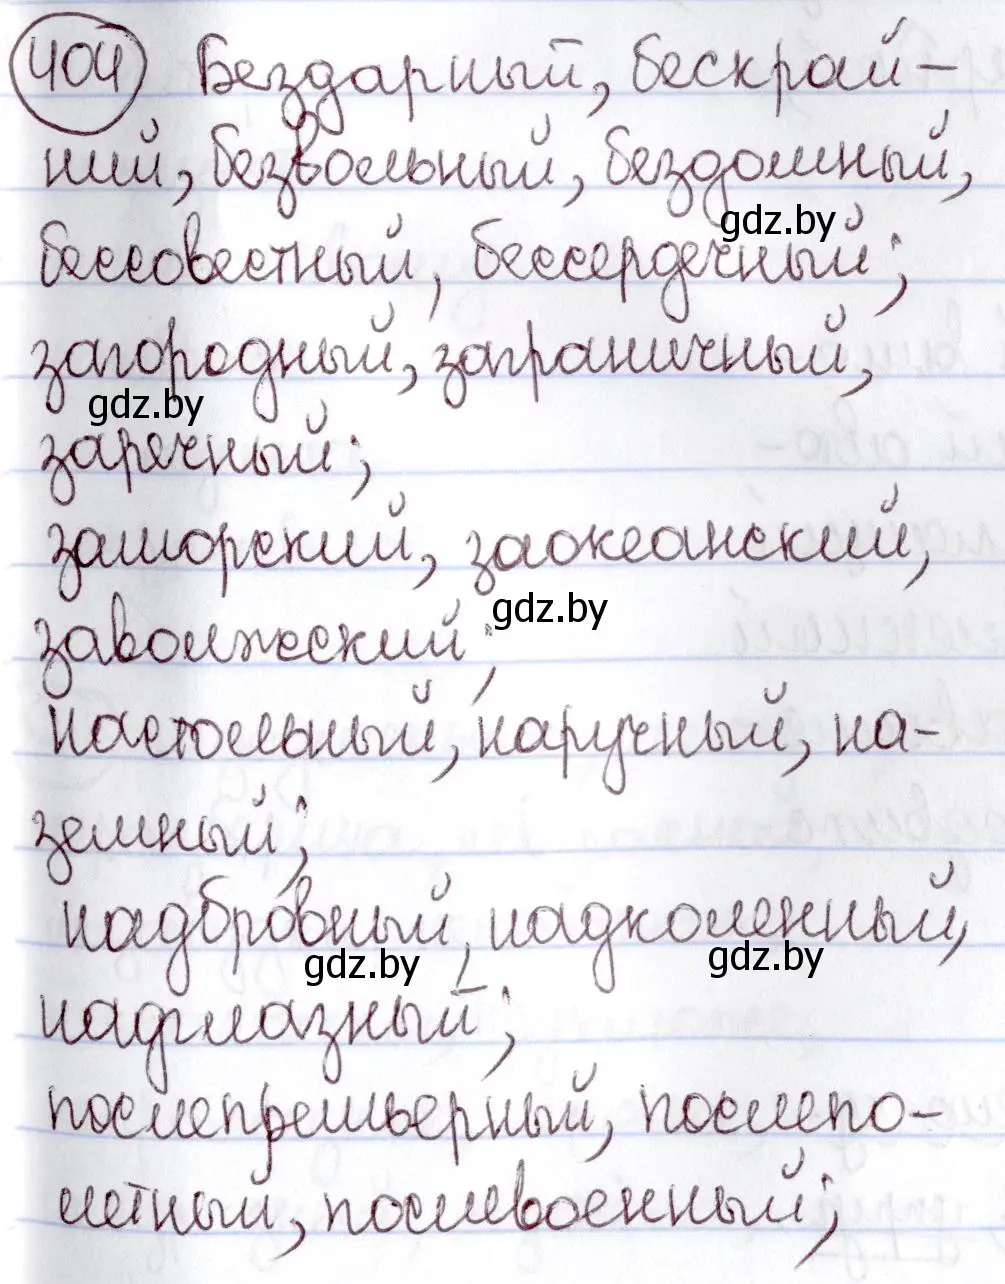 404 Бездарный, бескрай-
ний, безвольный, бездомный,
gdz.by
бессовестный, бессердечный;
загородный, заграничный,
gdz.by
заречный;
заморский, заокеанский,
gdz.by
заволжский;
настольный, наручный, на-
земный;
надбровный, надколенный,
gdz.by gdz.by
надглазный;
послепремьерный, послепо-
летный, послевоенный;